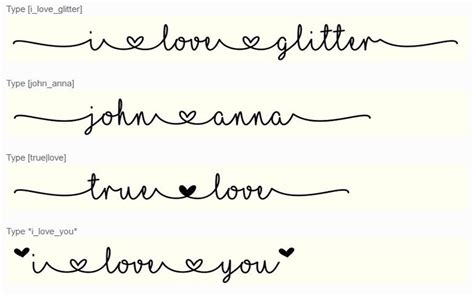 Type [i_love_glitter]
i♡love♡glitter
Type [john_anna]
john♡anna
Type [true|love]
true♥love
Type *i_love_you*
♥i♡love♡you♥